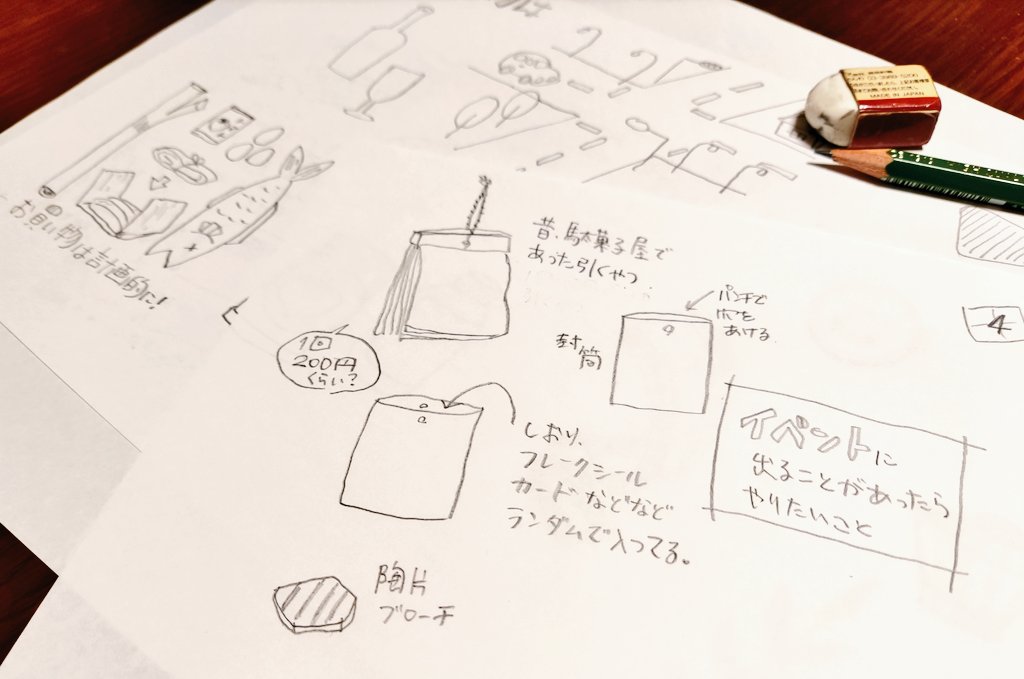 お買い物は計画的に!
昔、駄菓子屋で
あった引くやつ
1回
200円
くらい?
パンチで
穴を
あける
封筒
しおり、
フレークシール
カードなどなど
ランダムで入ってる。
イベントに
出ることがあったら
やりたいこと
陶片
ブローチ
4
MADE IN JAPAN